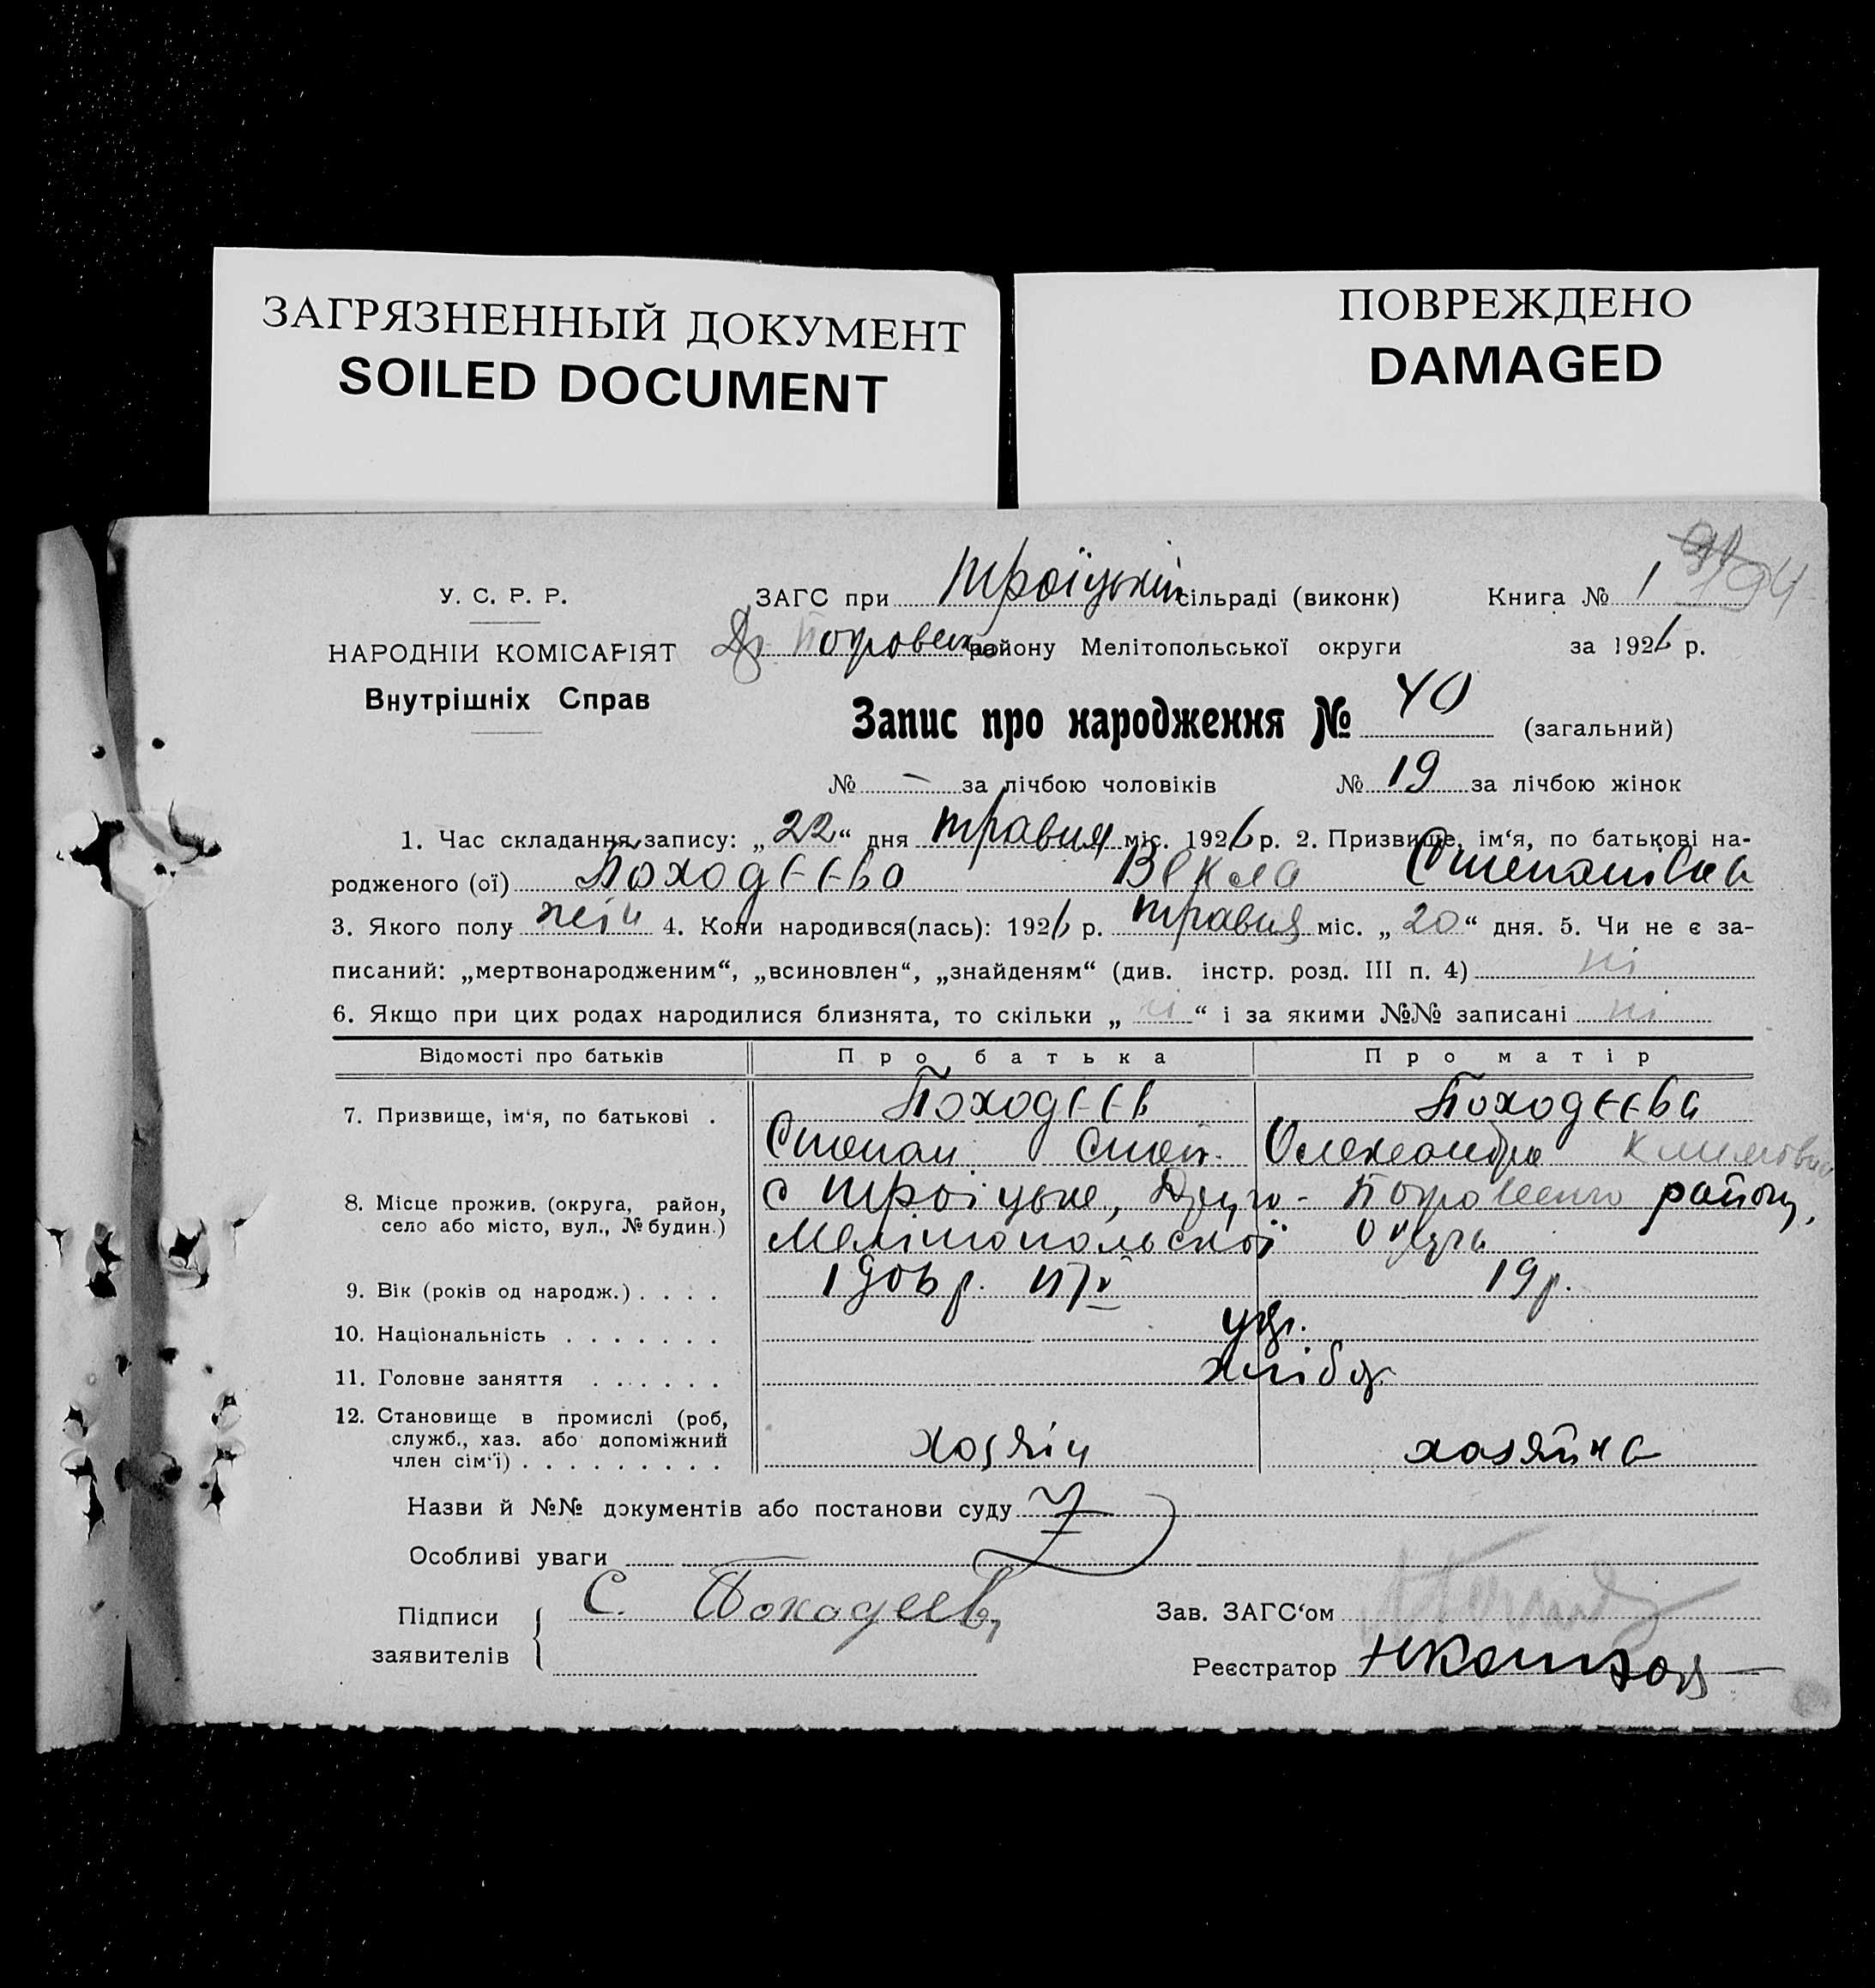 ЗАГРЯЗНЕННЫЙ ДОКУМЕНТ
SOILED DOCUMENT
ПОВРЕЖДЕНО
DAMAGED
У. С. Р. Р.
НАРОДНІЙ КОМІСАРІЯТ
Внутрішніх Справ
ЗАГС при Троїцькій сільраді (виконк) Книга № 1 94
району Мелітопольської округи за 1926 р.
Запис про народження № 40 (загальний)
№ – за лічбою чоловіків № 19 за лічбою жінок
1. Час складання запису: „22“ дня травня міс. 1926 р. 2. Призвище, ім‘я, по батькові на-
родженого (ої) Походєєва Векла Степанівна
3. Якого полу жін 4. Коли народився(лась): 1926 р. травня міс. „20“ дня. 5. Чи не є за-
писаний: „мертвонародженим“, „всиновлен“, „знайденям“ (див. інстр. розд. III п. 4) ні
6. Якщо при цих родах народилися близнята, то скільки „ні“ і за якими №№ записані ні
Відомості про батьків Про батька Про матір
7. Призвище, ім‘я, по батькові . Походєєв Походєєва
Степан Степ. Олександра
8. Місце прожив. (округа, район, село або місто, вул., № будин.) с Троїцьке, Друго-Покровського району,
Мелітопольської округи
9. Вік (років од народж.) . . . . 1906 р. 19 р.
10. Національність . . . . . . . укр.
11. Головне заняття . . . . . . хлібор
12. Становище в промислі (роб,
служб., хаз. або допоміжний
член сім‘ї) . . . . . . . . . хозяін хозяйка
Назви й №№ документів або постанови суду
Особливі уваги
Підписи
заявителів
С. Походеев
Зав. ЗАГС‘ом
Реєстратор